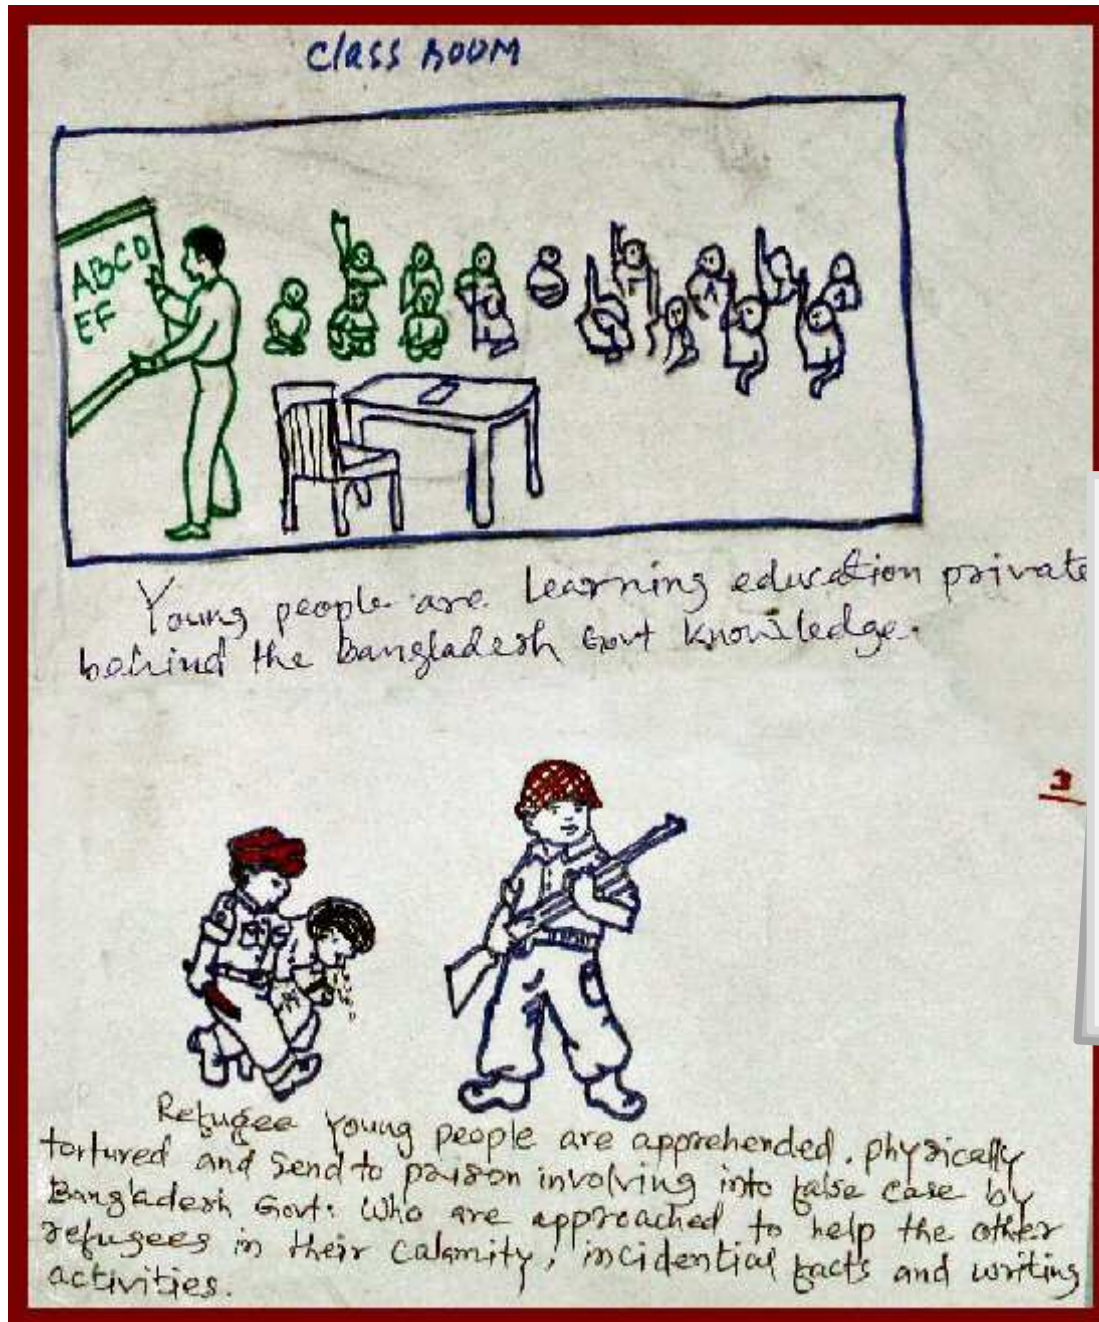 Class Room
ABCD
EF
Young people are Learning education private
behind the Bangladesh Govt Knowledge.
3
Refugee Young people are apprehended, physically
tortured and send to prison involving into false case by
Bangladesh Govt. Who are approached to help the other
refugees in their calamity, incidential facts and writing
activities.